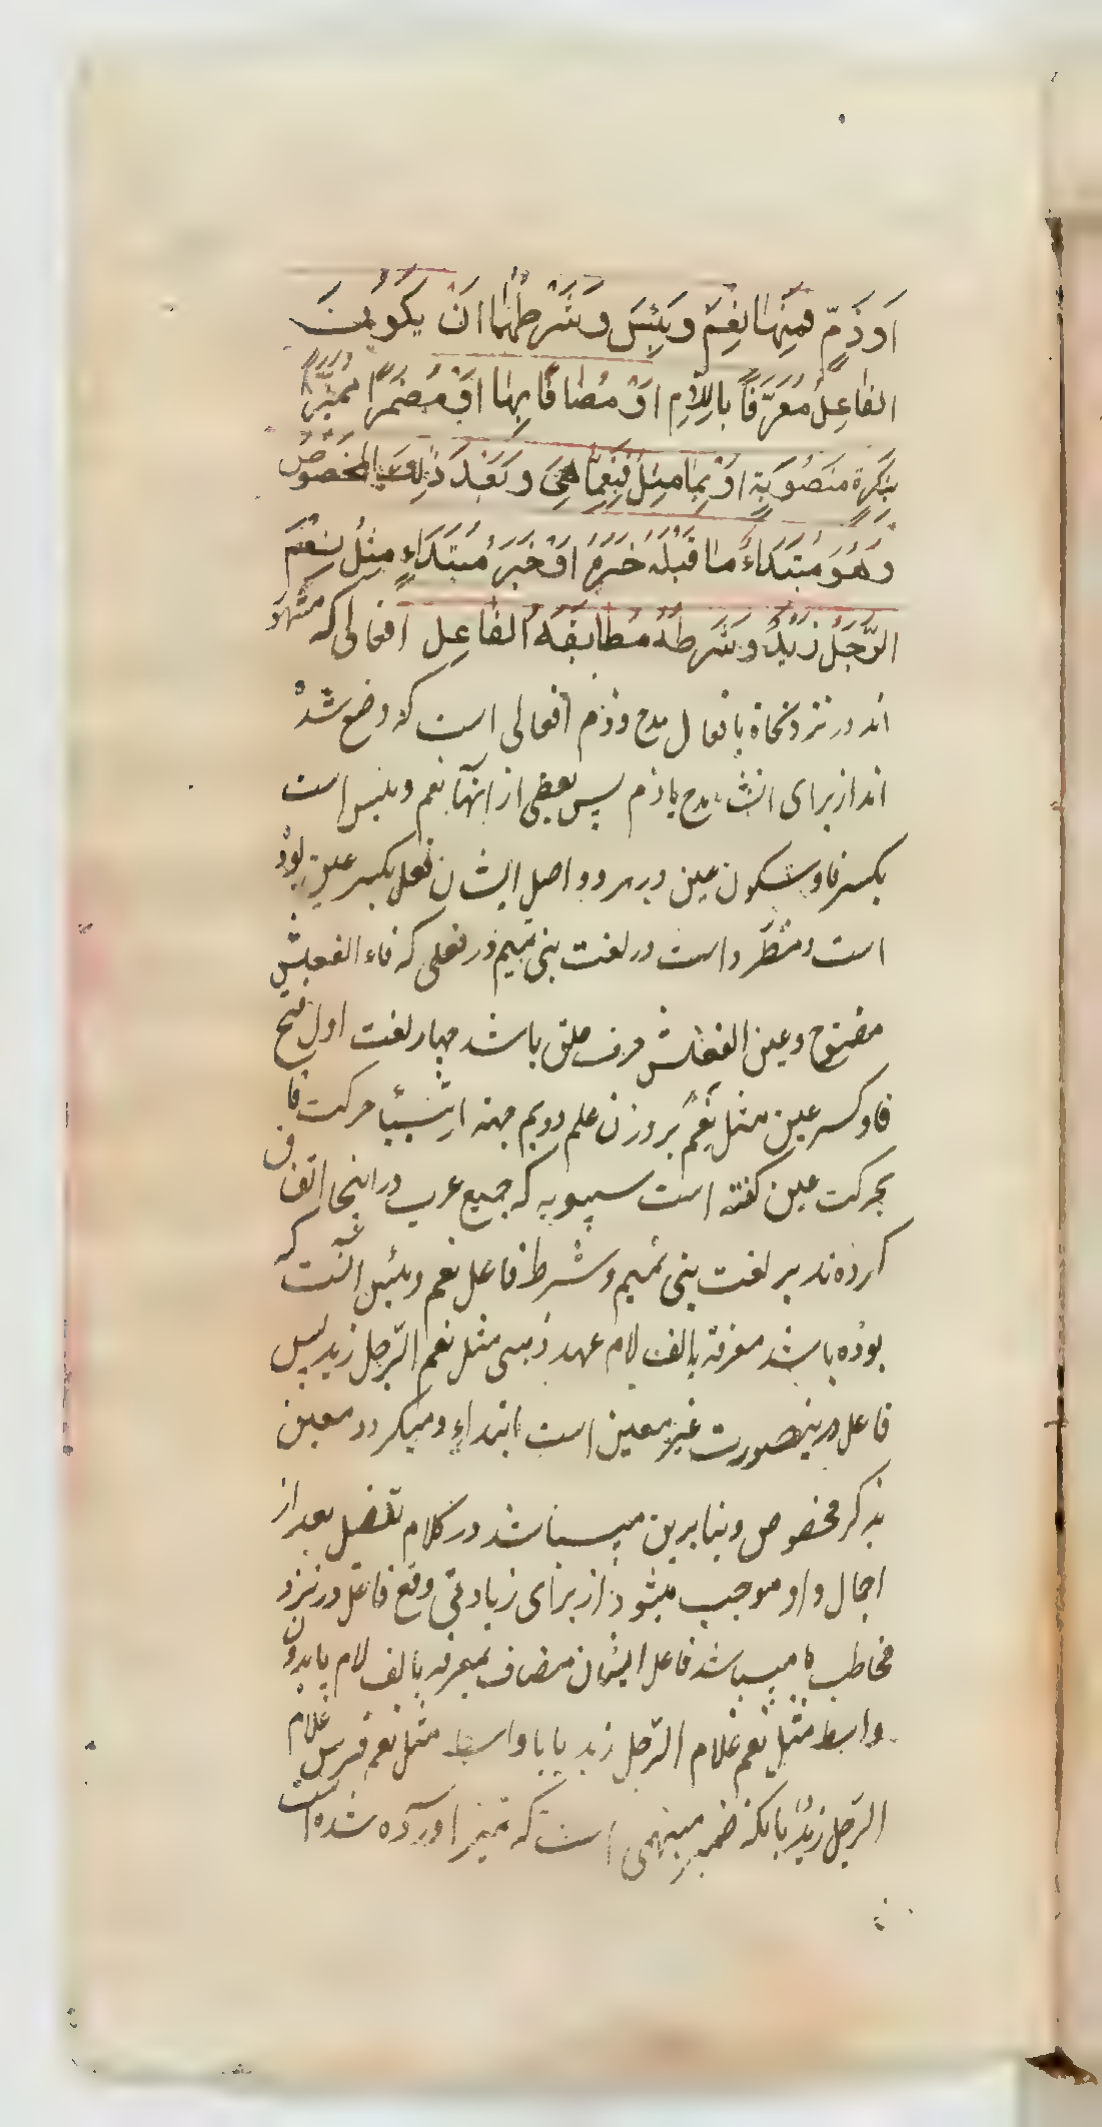 اَوْ ذَمٍّ فَمِنْهَا نِعْمَ وَ بِئْسَ وَ شَرْطُهُمَا اَنْ يَكُونَ
الفَاعِلُ مُعَرَّفًا بِاللّامِ اَوْ مُضَافًا بِهَا اَوْ مُضْمَرًا مُمَيَّزًا
بِنَكِرَةٍ مَنْصُوبَةٍ اَوْ بِمَا مِثْلُ فَنِعِمَّا هِیَ وَ بَعْدَ ذٰلِكَ المَخْصُوصُ
وَ هُوَ مُبْتَدَاءٌ مَا قَبْلَهُ خَبَرُهُ اَوْ خَبَرُ مُبْتَدَاءٍ مِثْلُ نِعْمَ
الرَّجُلُ زَيْدٌ وَ شَرْطُهُ مُطَابَقَةُ الفَاعِلِ افعالی که مشهور
اند در نزد نحاة بافعال مدح و ذم افعالی است که وضع شده
اند از برای انشاء مدح یا ذم پس بعضی از آنها نعم و بئس است
بکسر فا و سکون عین در هر دو و اصل ایشان فعل بکسر عین بوده
است و مطّرد است در لغت بنی تمیم در فعلی که فاء الفعلش
مفتوح و عین الفعلش حرف حلق باشد چهار لغت اول فتح
فا و کسر عین مثل نَعِمَ بر وزن علم دویم حرکت فا
بحرکت عین گفته است سیبویه که جمیع عرب در اینجا اتفاق
کرده‌اند بر لغت بنی تمیم و شرط فاعل نعم و بئس آنست که
بوده باشد معرفه بالف لام عهد ذهنی مثل نعم الرّجل زید پس
فاعل درینصورت غیر معین است ابتداءِ و میگردد معین
بذکر مخصوص و بنابرین میباشد در کلام تفصیل بعد از
اجمال و او موجب میشود از برای زیادتی وقع فاعل در نزد
مخاطب یا میباشد فاعل ایشان مضاف بمعرفه بالف لام یا بدون
واسطه مثل نعم غلام الرّجل زید یا با واسطه مثل نعم فرس غلام
الرّجل زیدٌ یا آنکه ضمیر مبهمی است که تمیز آورده شده است